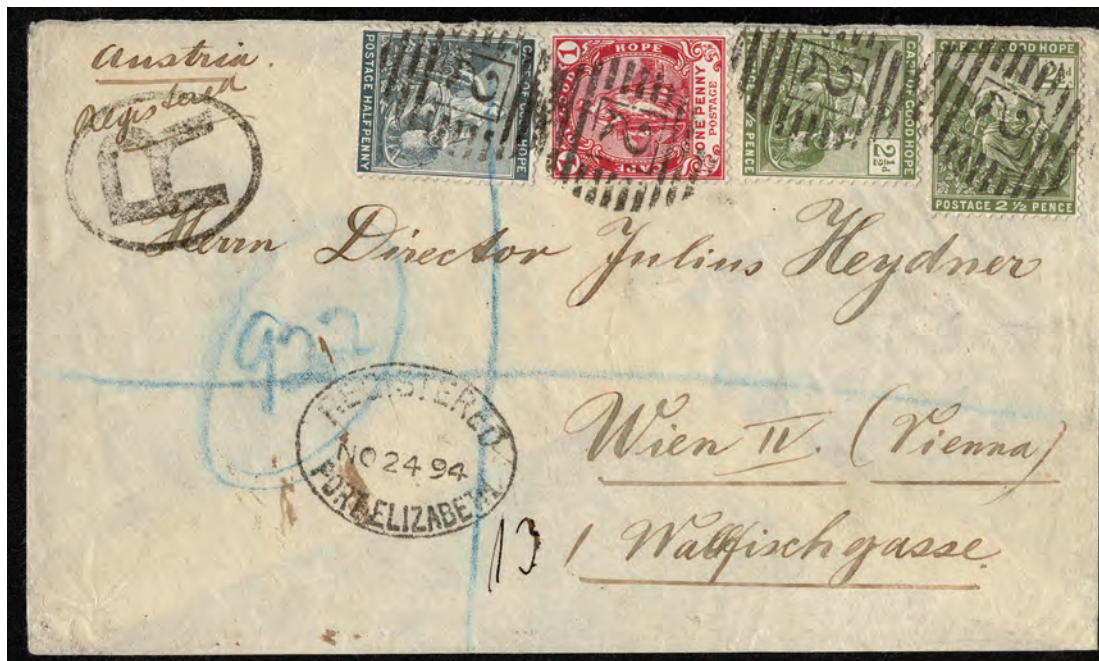 Austria.
Registered
R
POSTAGE HALFPENNY
CAPE OF GOOD HOPE
2
1
HOPE
GOOD
ONE PENNY
POSTAGE
2
CAPE OF GOOD HOPE
2½d
½ PENCE
2
CAPE OF GOOD HOPE
POSTAGE 2½ PENCE
2
Herrn Director Julius Heydner
922
REGISTERED
NO 24 94
PORT ELIZABETH
Wien IV. (Vienna)
13
1 Wallfischgasse